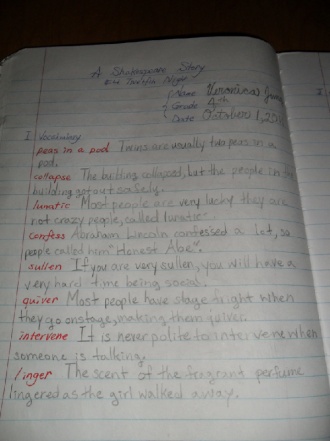 A Shakespeare Story
Name Veronica
Grade 4th
Date October 1, 20
I Vocabulary
peas in a pod Twins are usually two peas in a
pod.
collapse The building collapsed, but the people in the
building got out safely.
lunatic Most people are very lucky they are
not crazy people, called lunatic.
confess Abraham Lincoln confessed a lot, so
people called him "Honest Abe".
sullen If you are very sullen, you will have a
very hard time being social.
quiver Most people have stage fright when
they go onstage, making them
intervene It is never polite to intervene when
someone is talking.
linger The scent of the fragrant perfume
lingered as the girl walked away.